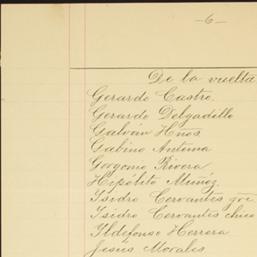 -6-
De la vuelta
Gerardo Castro.
Gerardo Delgadillo
Galván Hños
Gabino Antuna
Gorgonio Rivera
Hipólito Muñoz.
Isidro Cervantes gde
Isidro Cervantes chico
Ildefonso Herrera
Jesús Morales